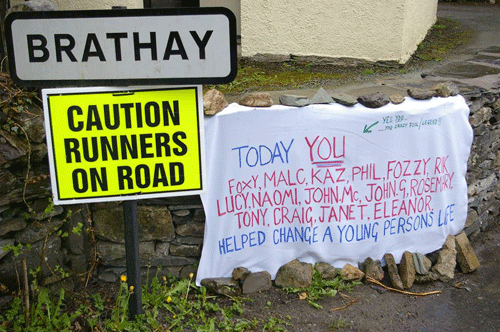 BRATHAY
CAUTION
RUNNERS
ON ROAD
YES YOU...
TODAY YOU
FOXY, MALC, KAZ, PHIL, FOZZY, RIK
LUCY, NAOMI, JOHN.Mc, JOHN.G, ROSEMARY.
TONY, CRAIG, JANET, ELEANOR.
HELPED CHANGE A YOUNG PERSONS LIFE